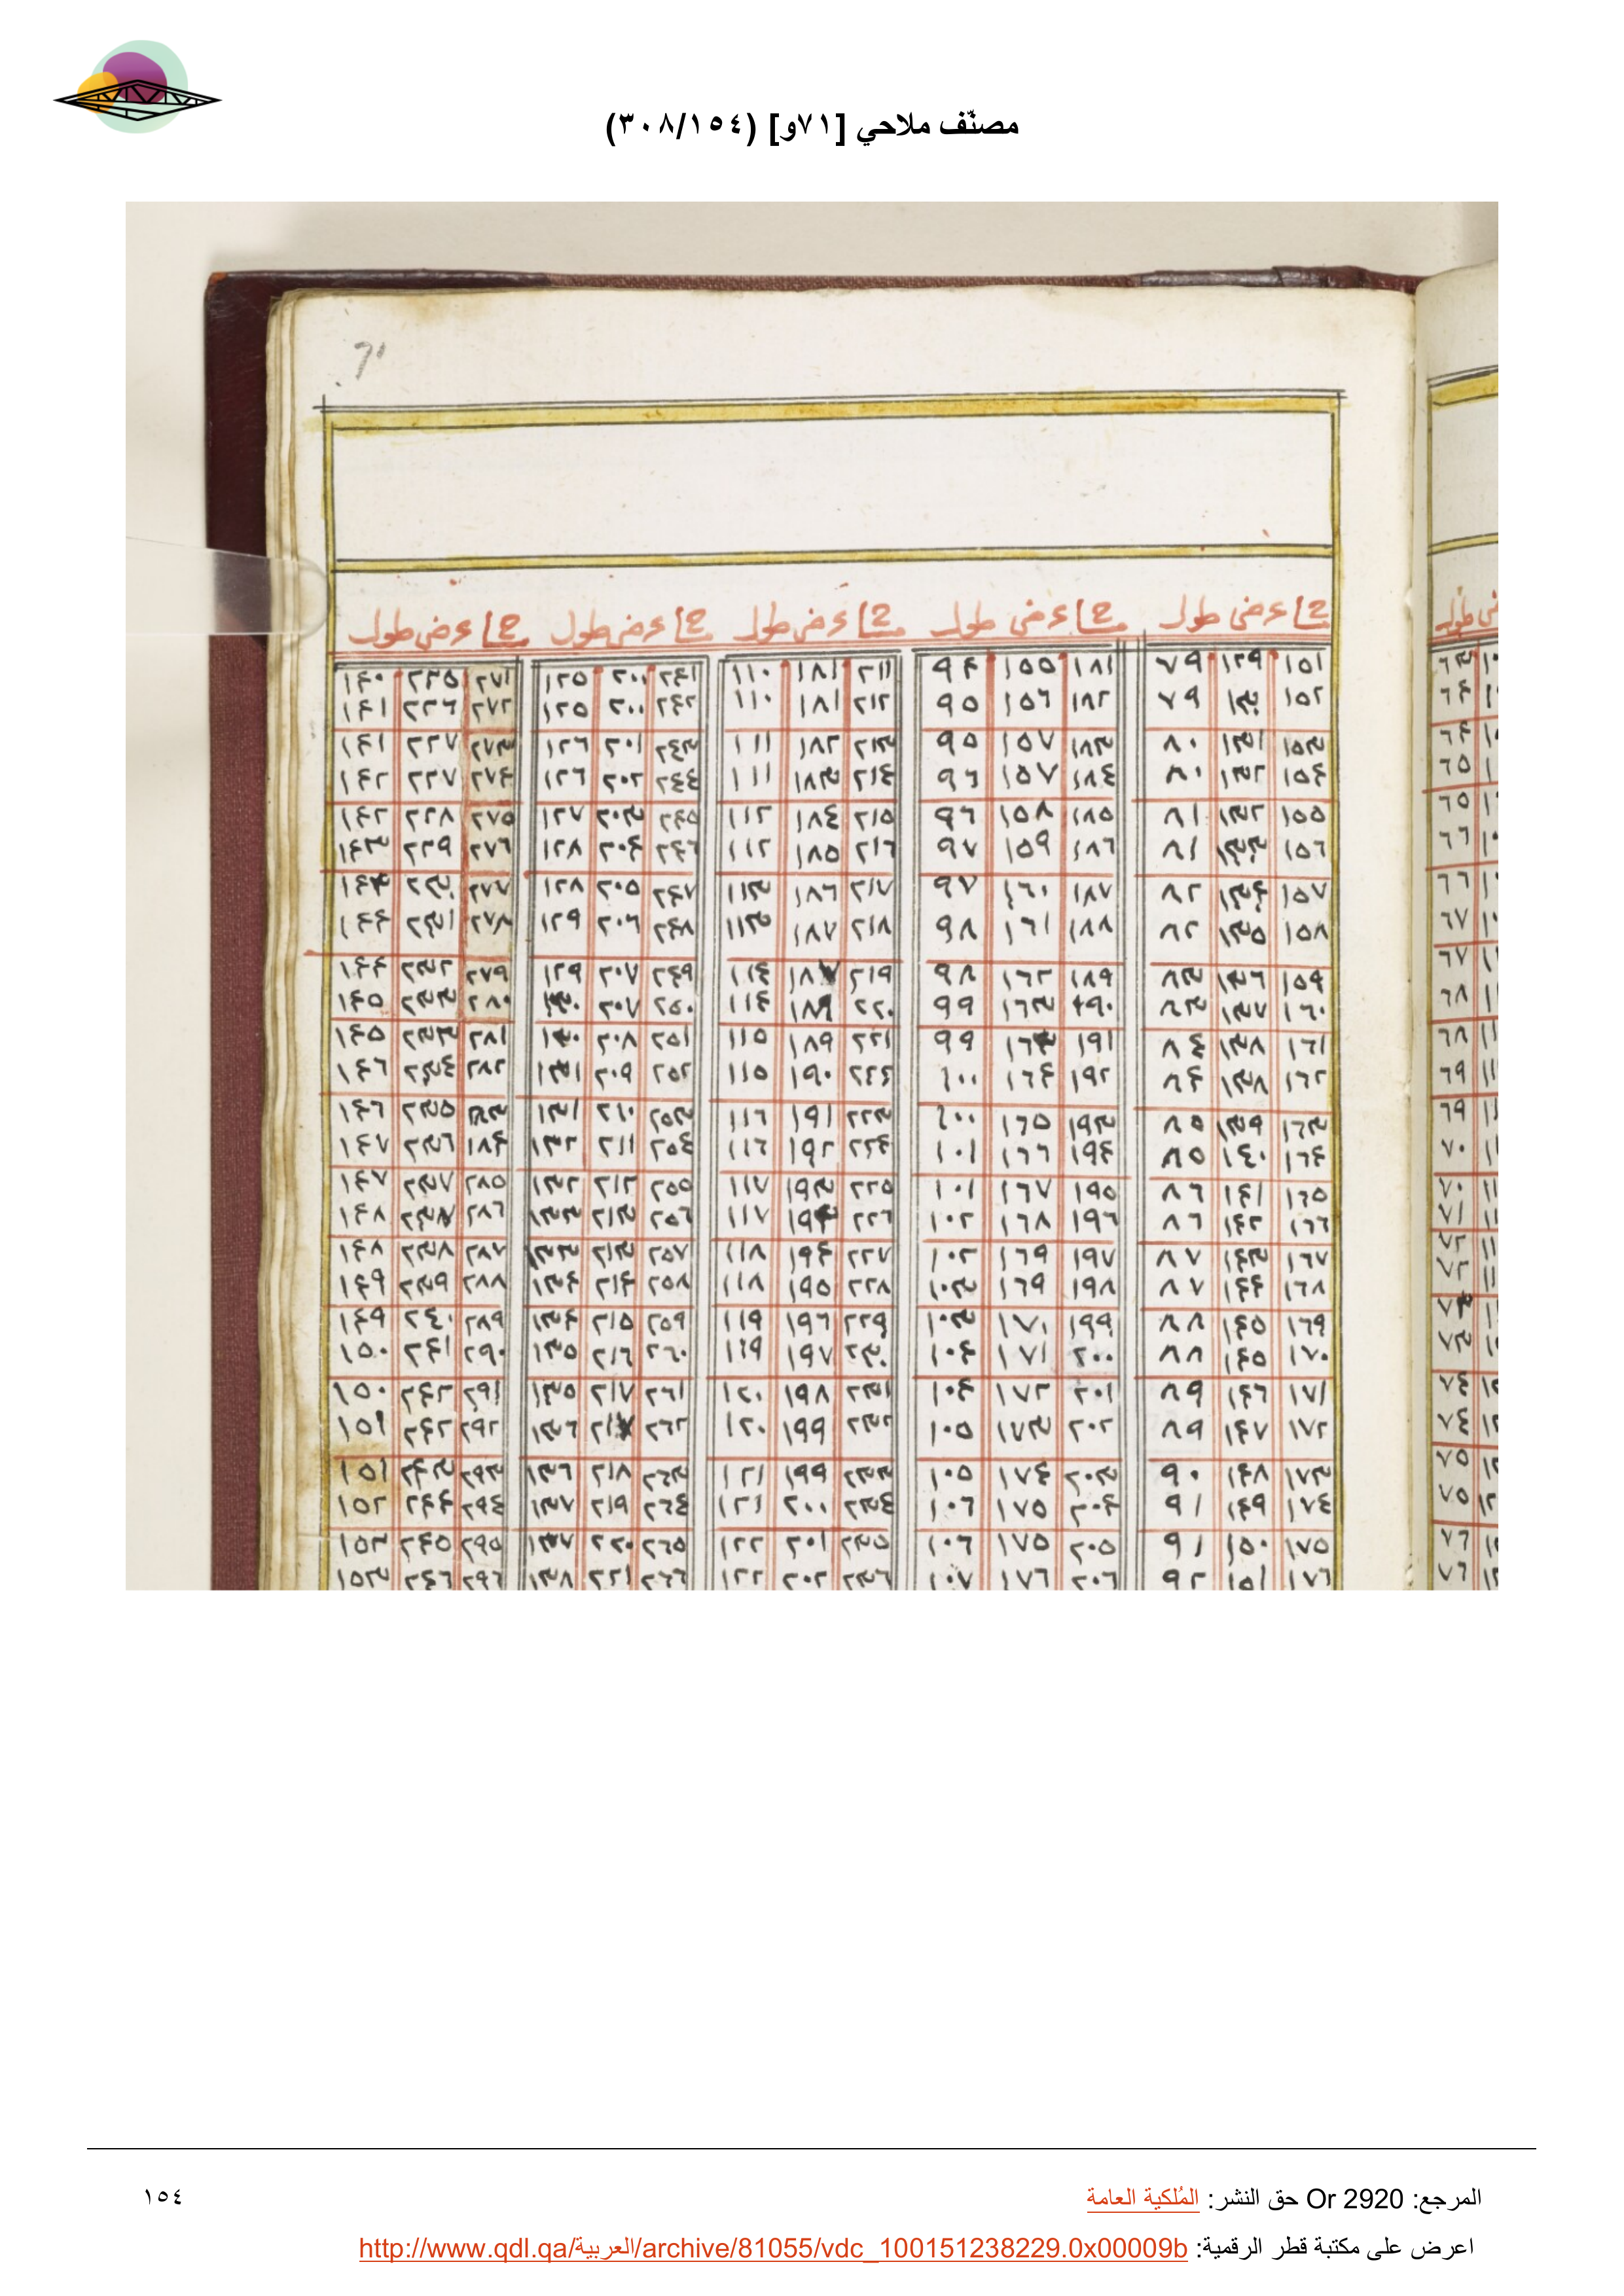 مصنّف ملاحي [٧١و] (٣٠٨/١٥٤)
71
عرض طول عرض طول عرض طول عرض طول عرض طول
١٥١ ١٢٩ ٧٩ ١٨١ ١٥٥ ٩٤ ٢١١ ١٨١ ١١٠ ٢٤١ ٢٠٠ ١٢٥ ٢٧١ ٢٢٥ ١٤٠
١٥٢ ١٣٠ ٧٩ ١٨٢ ١٥٦ ٩٥ ٢١٢ ١٨١ ١١٠ ٢٤٢ ٢٠٠ ١٢٥ ٢٧٢ ٢٢٦ ١٤١
١٥٣ ١٣١ ٨٠ ١٨٣ ١٥٧ ٩٥ ٢١٣ ١٨٢ ١١١ ٢٤٣ ٢٠١ ١٢٦ ٢٧٣ ٢٢٧ ١٤١
١٥٤ ١٣٢ ٨٠ ١٨٤ ١٥٧ ٩٦ ٢١٤ ١٨٣ ١١١ ٢٤٤ ٢٠٢ ١٢٦ ٢٧٤ ٢٢٧ ١٤٢
١٥٥ ١٣٢ ٨١ ١٨٥ ١٥٨ ٩٦ ٢١٥ ١٨٤ ١١٢ ٢٤٥ ٢٠٣ ١٢٧ ٢٧٥ ٢٢٨ ١٤٢
١٥٦ ١٣٣ ٨١ ١٨٦ ١٥٩ ٩٧ ٢١٦ ١٨٥ ١١٢ ٢٤٦ ٢٠٤ ١٢٨ ٢٧٦ ٢٢٩ ١٤٣
١٥٧ ١٣٤ ٨٢ ١٨٧ ١٦٠ ٩٧ ٢١٧ ١٨٦ ١١٣ ٢٤٧ ٢٠٥ ١٢٨ ٢٧٧ ٢٣٠ ١٤٣
١٥٨ ١٣٥ ٨٢ ١٨٨ ١٦١ ٩٨ ٢١٨ ١٨٧ ١١٣ ٢٤٨ ٢٠٦ ١٢٩ ٢٧٨ ٢٣١ ١٤٤
١٥٩ ١٣٦ ٨٣ ١٨٩ ١٦٢ ٩٨ ٢١٩ ١٨٧ ١١٤ ٢٤٩ ٢٠٧ ١٢٩ ٢٧٩ ٢٣٢ ١٤٤
١٦٠ ١٣٧ ٨٣ ١٩٠ ١٦٣ ٩٩ ٢٢٠ ١٨٩ ١١٤ ٢٥٠ ٢٠٧ ١٣٠ ٢٨٠ ٢٣٣ ١٤٥
١٦١ ١٣٨ ٨٤ ١٩١ ١٦٣ ٩٩ ٢٢١ ١٨٩ ١١٥ ٢٥١ ٢٠٨ ١٣٠ ٢٨١ ٢٣٣ ١٤٥
١٦٢ ١٣٨ ٨٤ ١٩٢ ١٦٤ ١٠٠ ٢٢٢ ١٩٠ ١١٥ ٢٥٢ ٢٠٩ ١٣١ ٢٨٢ ٢٣٤ ١٤٦
١٦٣ ١٣٩ ٨٥ ١٩٣ ١٦٥ ١٠٠ ٢٢٣ ١٩١ ١١٦ ٢٥٣ ٢١٠ ١٣١ ٢٨٣ ٢٣٥ ١٤٦
١٦٤ ١٤٠ ٨٥ ١٩٤ ١٦٦ ١٠١ ٢٢٤ ١٩٢ ١١٦ ٢٥٤ ٢١١ ١٣٢ ١٨٤ ٢٣٦ ١٤٧
١٦٥ ١٤١ ٨٦ ١٩٥ ١٦٧ ١٠١ ٢٢٥ ١٩٣ ١١٧ ٢٥٥ ٢١٢ ١٣٢ ٢٨٥ ٢٣٧ ١٤٧
١٦٦ ١٤٢ ٨٦ ١٩٦ ١٦٨ ١٠٢ ٢٢٦ ١٩٤ ١١٧ ٢٥٦ ٢١٣ ١٣٣ ٢٨٦ ٢٣٨ ١٤٨
١٦٧ ١٤٣ ٨٧ ١٩٧ ١٦٩ ١٠٢ ٢٢٧ ١٩٤ ١١٨ ٢٥٧ ٢١٣ ١٣٣ ٢٨٧ ٢٣٨ ١٤٨
١٦٨ ١٤٤ ٨٧ ١٩٨ ١٦٩ ١٠٣ ٢٢٨ ١٩٥ ١١٨ ٢٥٨ ٢١٤ ١٣٤ ٢٨٨ ٢٣٩ ١٤٩
١٦٩ ١٤٥ ٨٨ ١٩٩ ١٧٠ ١٠٣ ٢٢٩ ١٩٦ ١١٩ ٢٥٩ ٢١٥ ١٣٤ ٢٨٩ ٢٤٠ ١٤٩
١٧٠ ١٤٥ ٨٨ ٢٠٠ ١٧١ ١٠٤ ٢٣٠ ١٩٧ ١١٩ ٢٦٠ ٢١٦ ١٣٥ ٢٩٠ ٢٤١ ١٥٠
١٧١ ١٤٦ ٨٩ ٢٠١ ١٧٢ ١٠٤ ٢٣١ ١٩٨ ١٢٠ ٢٦١ ٢١٧ ١٣٥ ٢٩١ ٢٤٢ ١٥٠
١٧٢ ١٤٧ ٨٩ ٢٠٢ ١٧٣ ١٠٥ ٢٣٢ ١٩٩ ١٢٠ ٢٦٢ ٢١٧ ١٣٦ ٢٩٢ ٢٤٢ ١٥١
١٧٣ ١٤٨ ٩٠ ٢٠٣ ١٧٤ ١٠٥ ٢٣٣ ١٩٩ ١٢١ ٢٦٣ ٢١٨ ١٣٦ ٢٩٣ ٢٤٣ ١٥١
١٧٤ ١٤٩ ٩١ ٢٠٤ ١٧٥ ١٠٦ ٢٣٤ ٢٠٠ ١٢١ ٢٦٤ ٢١٩ ١٣٧ ٢٩٤ ٢٤٤ ١٥٢
١٧٥ ١٥٠ ٩١ ٢٠٥ ١٧٥ ١٠٦ ٢٣٥ ٢٠١ ١٢٢ ٢٦٥ ٢٢٠ ١٣٧ ٢٩٥ ٢٤٥ ١٥٢
١٧٦ ١٥١ ٩٢ ٢٠٦ ١٧٦ ١٠٧ ٢٣٦ ٢٠٢ ١٢٢ ٢٦٦ ٢٢١ ١٣٨ ٢٩٦ ٢٤٦ ١٥٣
المرجع: Or 2920 حق النشر: المُلكية العامة
١٥٤
اعرض على مكتبة قطر الرقمية: http://www.qdl.qa/العربية/archive/81055/vdc_100151238229.0x00009b